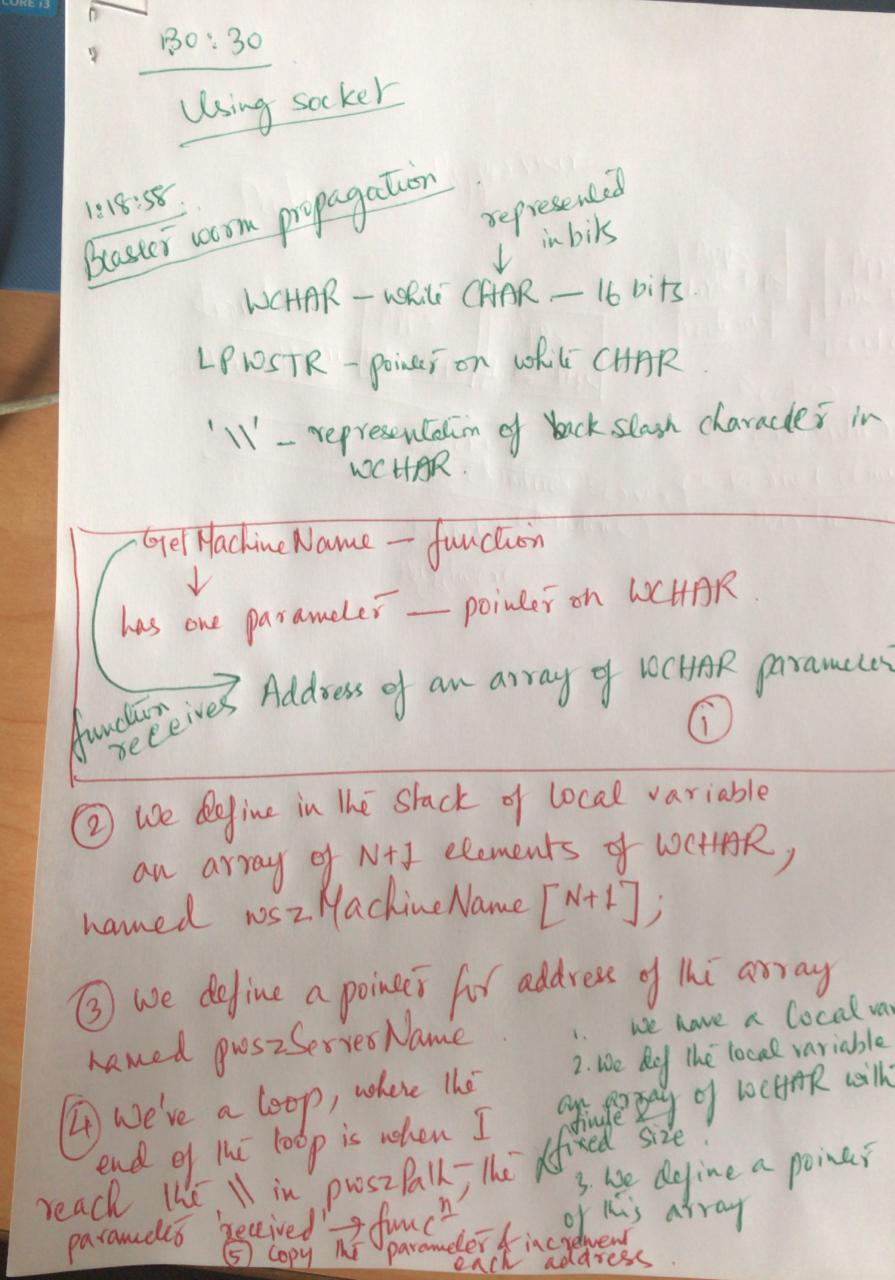 CORE i3
BO : 30
Using socket
1:18:58
Blaster worm propagation
represented
in bits
WCHAR – white CHAR – 16 bits.
LPWSTR – pointer on white CHAR.
'\\' – representation of back slash character in
WCHAR.
GetMachineName – function
has one parameter – pointer on WCHAR.
function receives Address of an array of WCHAR parameter
1
2 We define in the stack of local variable
an array of N+1 elements of WCHAR,
named wszMachineName [N+1];
3 We define a pointer for address of the array
named pwszServerName.
4 We've a loop, where the
end of the loop is when I
reach the \\ in pwszPath, the
parameter 'received' → funcⁿ
5 copy the parameter & increment
each address.
1. We have a local var
2. We def the local variable
an array of WCHAR with
finite
fixed size.
3. We define a pointer
of this array